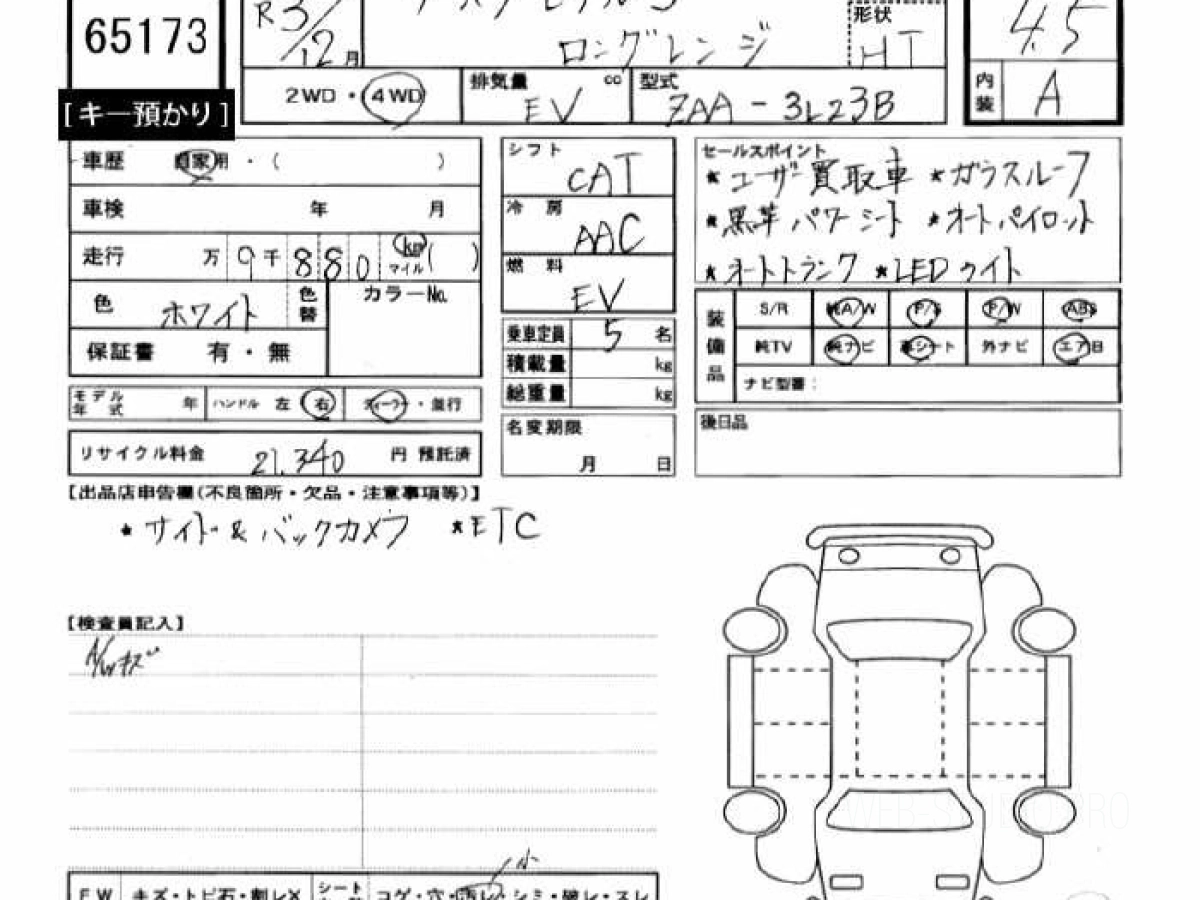 65173
[キー預かり]
R3/12月
ロングレンジ
形状
HT
4.5
2WD・4WD
排気量 cc
EV
型式
ZAA-3L23B
内装 A
車歴 自家用・( )
車検 年 月
走行 万 9千880 km マイル( )
色 ホワイト 色替 カラーNo.
保証書 有・無
モデル年式 年 ハンドル 左 右 ディーラー・並行
リサイクル料金 21,340 円 預託済
シフト
CAT
冷房
AAC
燃料
EV
乗車定員 5 名
積載量 kg
総重量 kg
名変期限
月 日
セールスポイント
★ユーザー買取車 ★ガラスルーフ
★黒革パワーシート ★オートパイロット
★オートトランク ★LEDライト
装備品
S/R 純A/W P/S P/W ABS
純TV 純ナビ 革シート 外ナビ エアB
ナビ型番:
後日品
【出品店申告欄(不良箇所・欠品・注意事項等)】
★サイド&バックカメラ ★ETC
【検査員記入】
A/Wキズ
小
FW キズ・トビ石・割レX シート コゲ・穴・汚レ・シミ・破レ・スレ